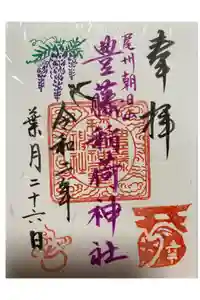 奉拝
尾州朝日山
豊藤稲荷神社
令和二年
葉月二十六日